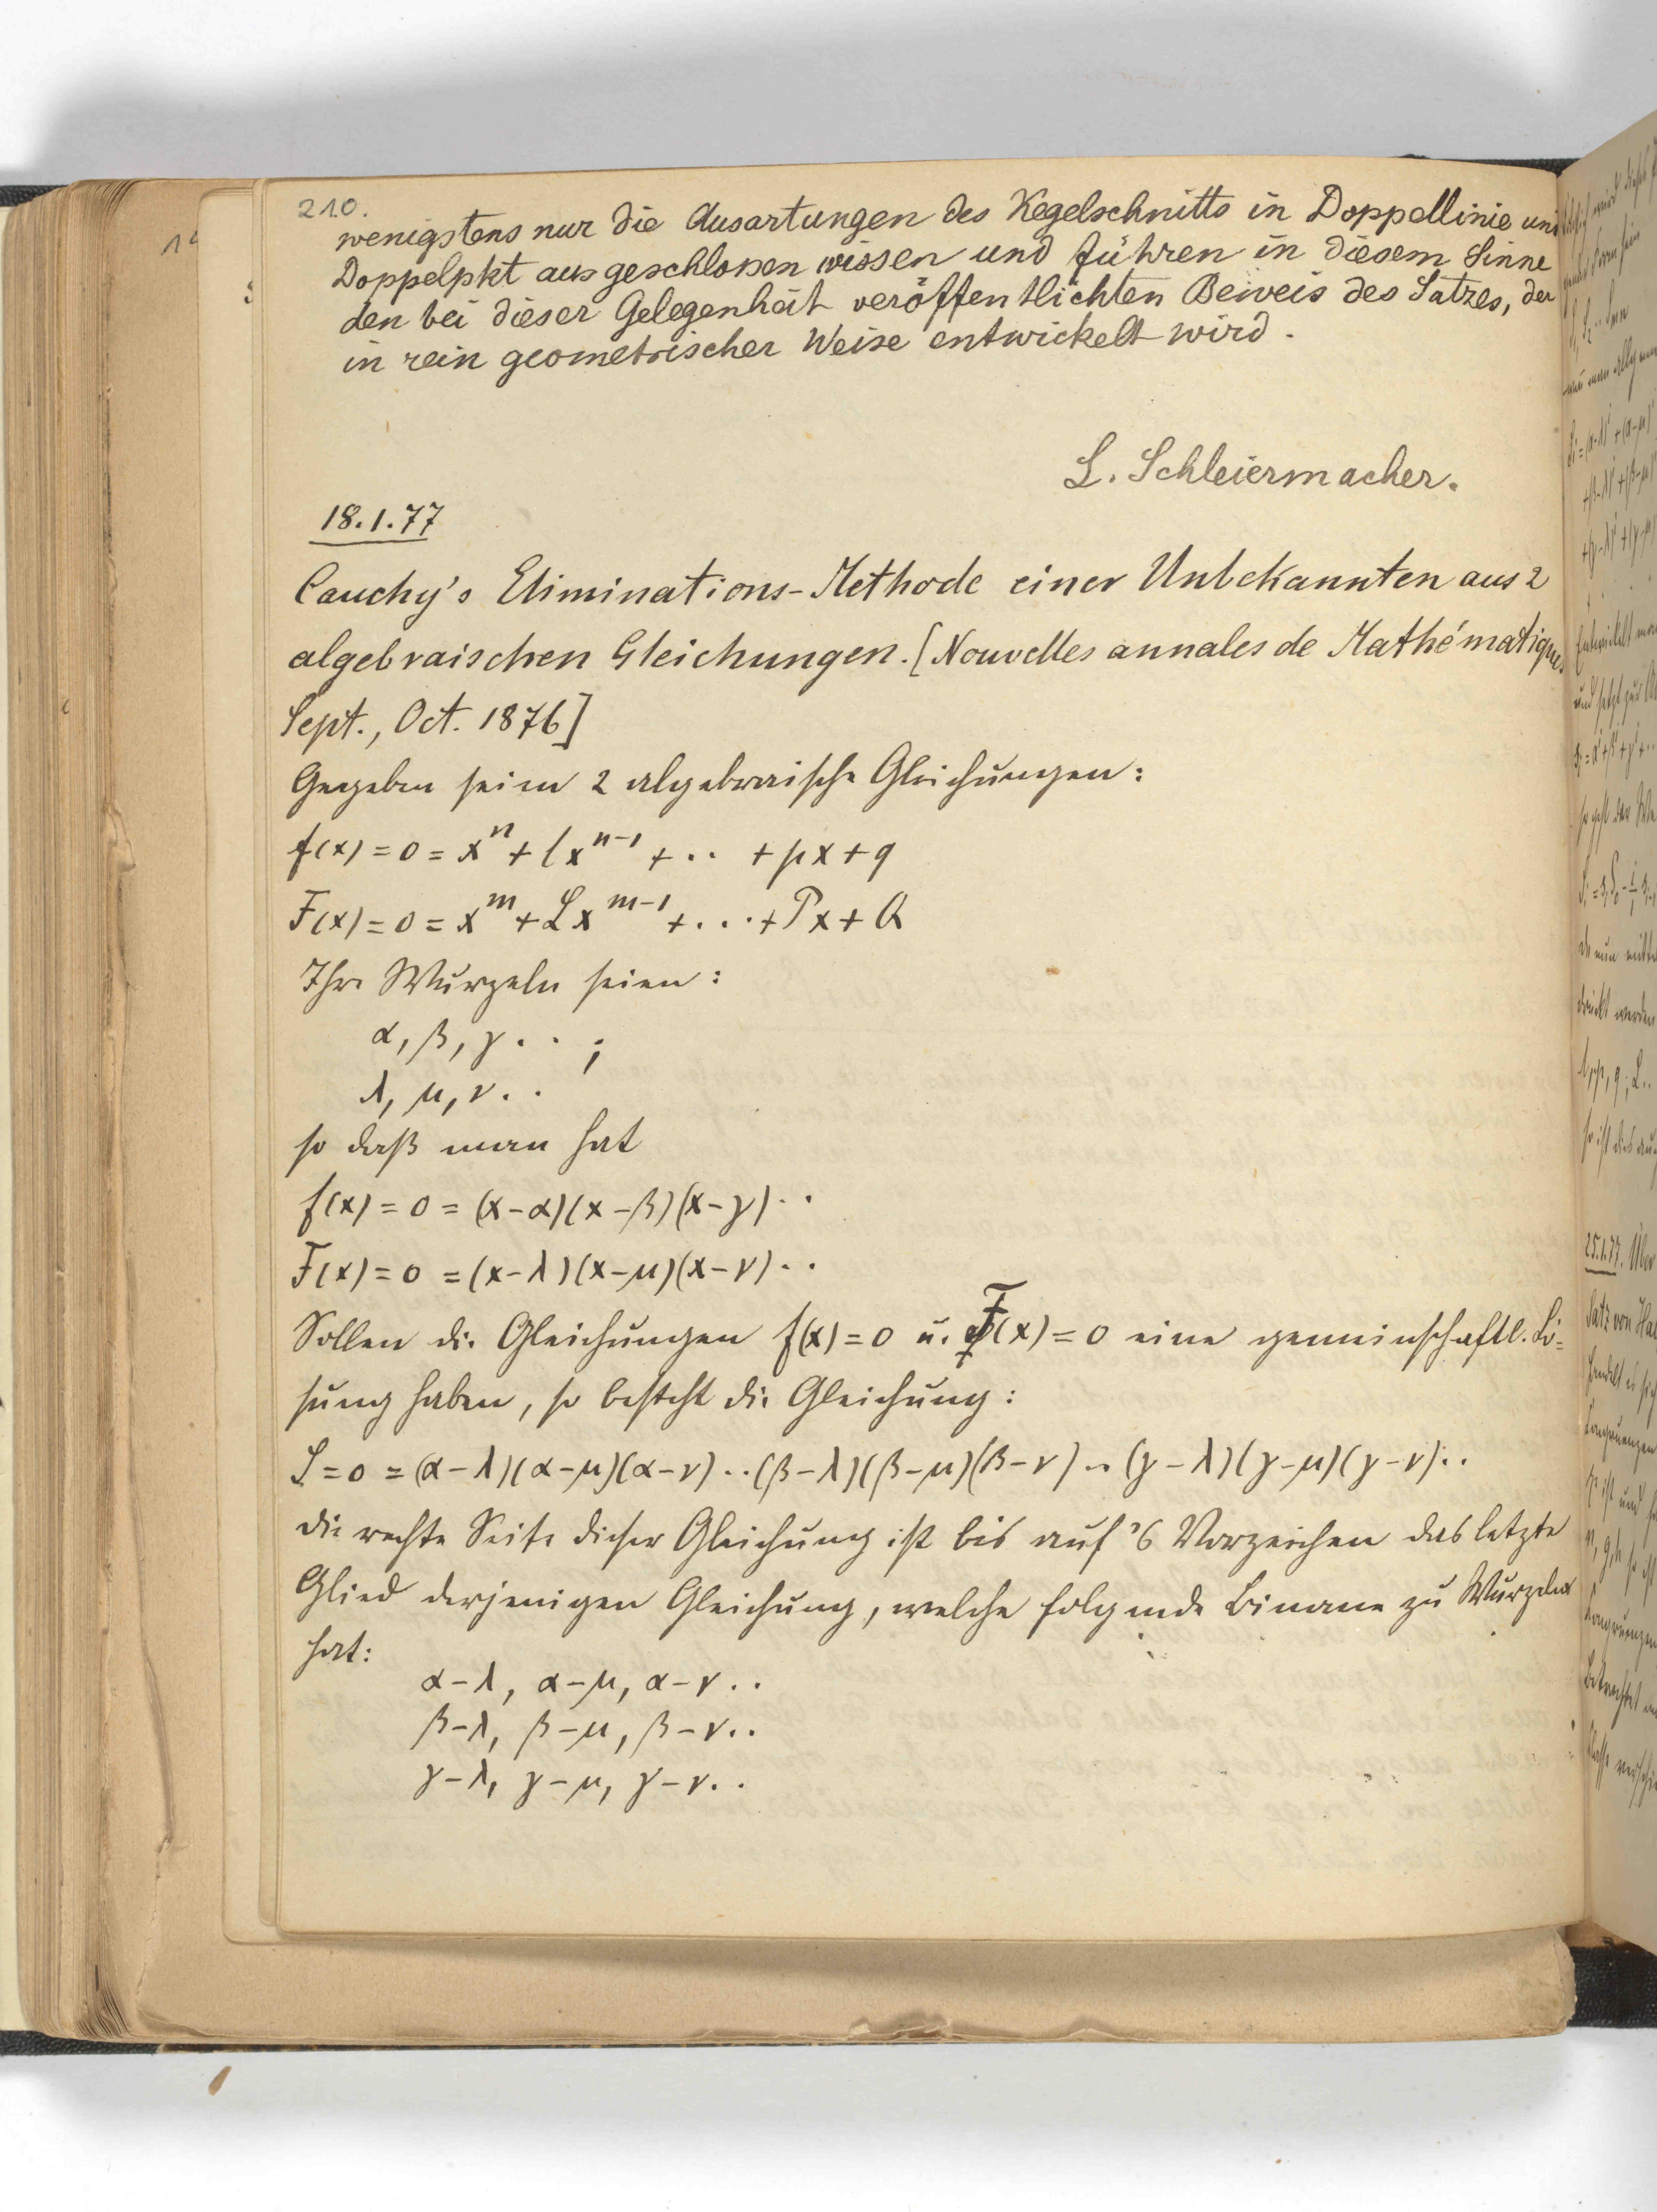 210.
wenigstens nur die Ausartungen des Kegelschnitts in Doppellinie und
Doppelpkt ausgeschlossen wissen und führen in diesem Sinne
den bei dieser Gelegenheit veröffentlichten Beweis des Satzes, der
in rein geometrischer Weise entwickelt wird.
L. Schleiermacher.
18.1.77
Cauchy's Eliminations-Methode einer Unbekannten aus 2
algebraischen Gleichungen. [Nouvelles annales de Mathématiques
Sept., Oct. 1876]
Gegeben seien 2 algebraische Gleichungen:
f(x) = 0 = x^n + l x^{n-1} + .. + px + q
F(x) = 0 = x^m + L x^{m-1} + ... + Px + Q
Ihre Wurzeln seien:
α, β, γ . . ;
λ, μ, ν . .
so daß man hat
f(x) = 0 = (x-α)(x-β)(x-γ) ..
F(x) = 0 = (x-λ)(x-μ)(x-ν) ..
Sollen die Gleichungen f(x) = 0 u. F(x) = 0 eine gemeinschaftl. Lö=
sung haben, so besteht die Gleichung:
S = 0 = (α-λ)(α-μ)(α-ν) .. (β-λ)(β-μ)(β-ν) .. (γ-λ)(γ-μ)(γ-ν) ..
die rechte Seite dieser Gleichung ist bis auf's Vorzeichen das letzte
Glied derjenigen Gleichung, welche folgende Binome zu Wurzeln
hat:
α-λ, α-μ, α-ν ..
β-λ, β-μ, β-ν ..
γ-λ, γ-μ, γ-ν ..
25.1.77. Über
Satz von